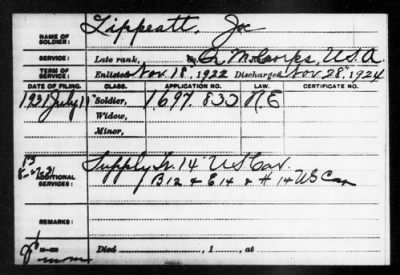 NAME OF SOLDIER: Lippeatt, Joe
SERVICE: Late rank, Q. M. Corps, U.S.A.
TERM OF SERVICE: Enlisted Nov. 18, 1922 Discharged Nov. 28, 1924
DATE OF FILING. CLASS. APPLICATION NO. LAW. CERTIFICATE NO.
1931 July 11 Soldier, 1697.833
Widow,
Minor,
ADDITIONAL SERVICES: Supply Tr. 14" US Cav.
B 12 & E 14 & H 14 US Cav
REMARKS:
Died , 1 , at